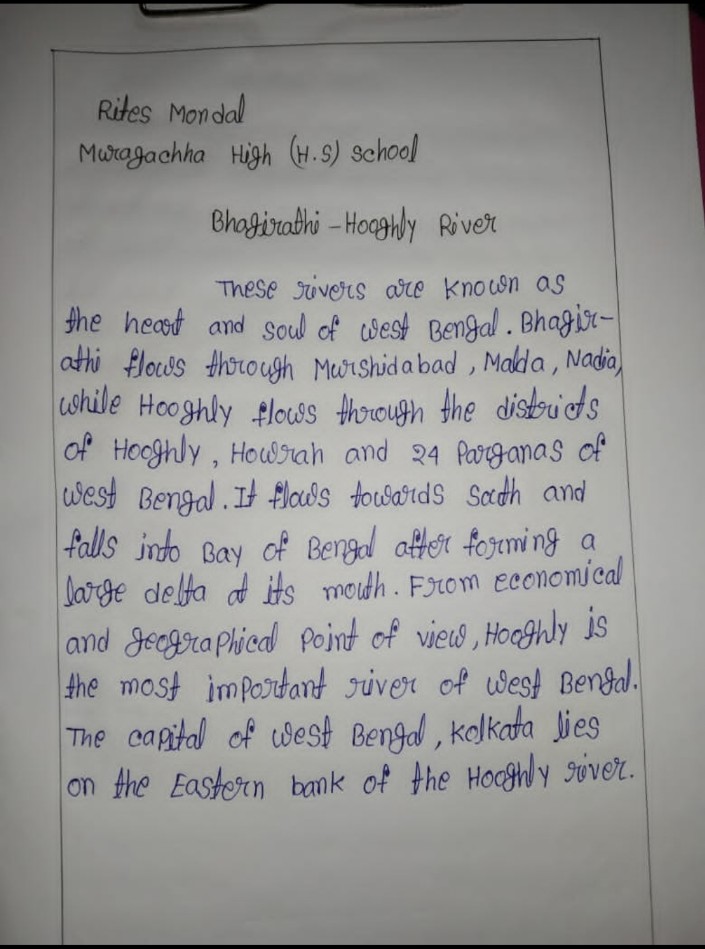 Rites Mondal
Muragachha High (H.S) School
Bhagirathi - Hooghly River
These rivers are known as
the heart and soul of West Bengal. Bhagir-
athi flows through Murshidabad, Malda, Nadia,
while Hooghly flows through the districts
of Hooghly, Howrah and 24 Parganas of
West Bengal. It flows towards South and
falls into Bay of Bengal after forming a
large delta at its mouth. From economical
and geographical point of view, Hooghly is
the most important river of West Bengal.
The capital of West Bengal, Kolkata lies
on the Eastern bank of the Hooghly river.